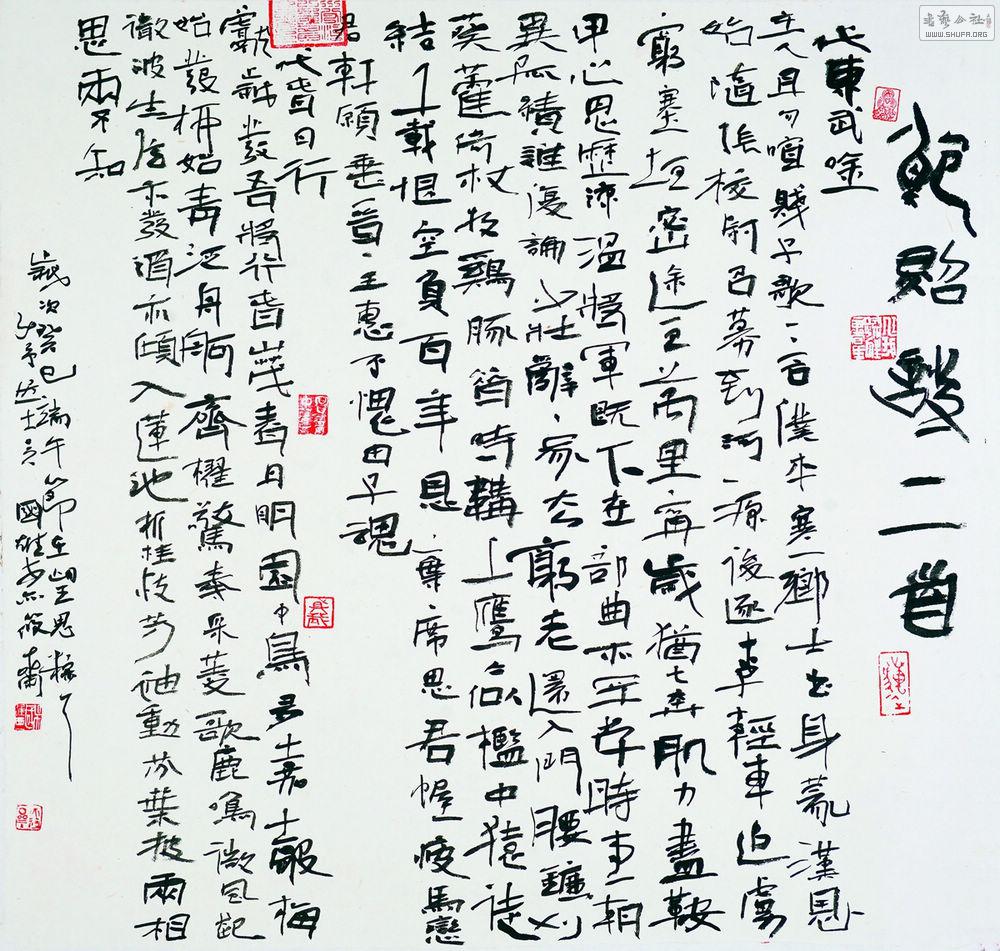 鮑照詩二首
代東武吟
主人且勿喧賤子歌一言僕本寒鄉士出身蒙漢恩
始隨張校尉召募到河源後逐李輕車追虜
窮塞垣密途亙萬里寧歲猶七奔肌力盡鞍
甲心思歷涼溫將軍既下世部曲亦罕存時事一朝
異孤績誰復論少壯辭家去窮老還入門腰鐮刈
葵藿倚杖牧鷄豚昔時韝上鷹今似檻中猿徒
結千載恨空負百年怨棄席思君幄疲馬戀
君軒願垂晉主惠不愧田子魂
代春日行
獻歲發吾將行春山茂春日明園中鳥多嘉聲梅
始發柳始青泛舟艫齊櫂驚奏采菱歌鹿鳴微風起
微波生弦亦發酒亦傾入蓮池折桂枝芳袖動芬葉披兩相
思兩不知
歲次癸巳端午節
國雄
書藝公社
WWW.SHUFA.ORG